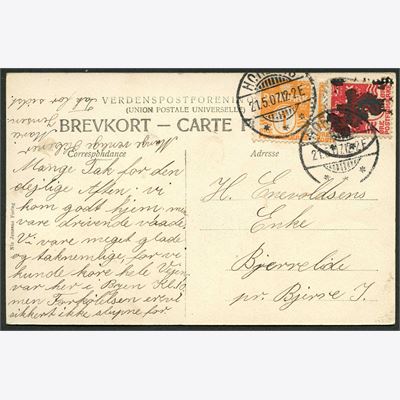 VERDENSPOSTFORENINGEN
(UNION POSTALE UNIVERSELLE)
BREVKORT — CARTE
Correspondance
Adresse
21.5.07.12-2.E.
21.5.07.12-2.E.
Mange Tak for den
dejlige Aften; vi
kom godt hjem men
vare drivende vaade
Vi vare meget glade
og taknemlige, for vi
kunde køre hele Vejen
var her i Byen Kl. 10
men Forkølelsen ere vi
sikkert ikke slupne for
Tak for sidst
Mange venlige Hilsener
Maria Jensen
H. Enevoldsens
Enke
Bjerrelide
pr. Bjerre J.